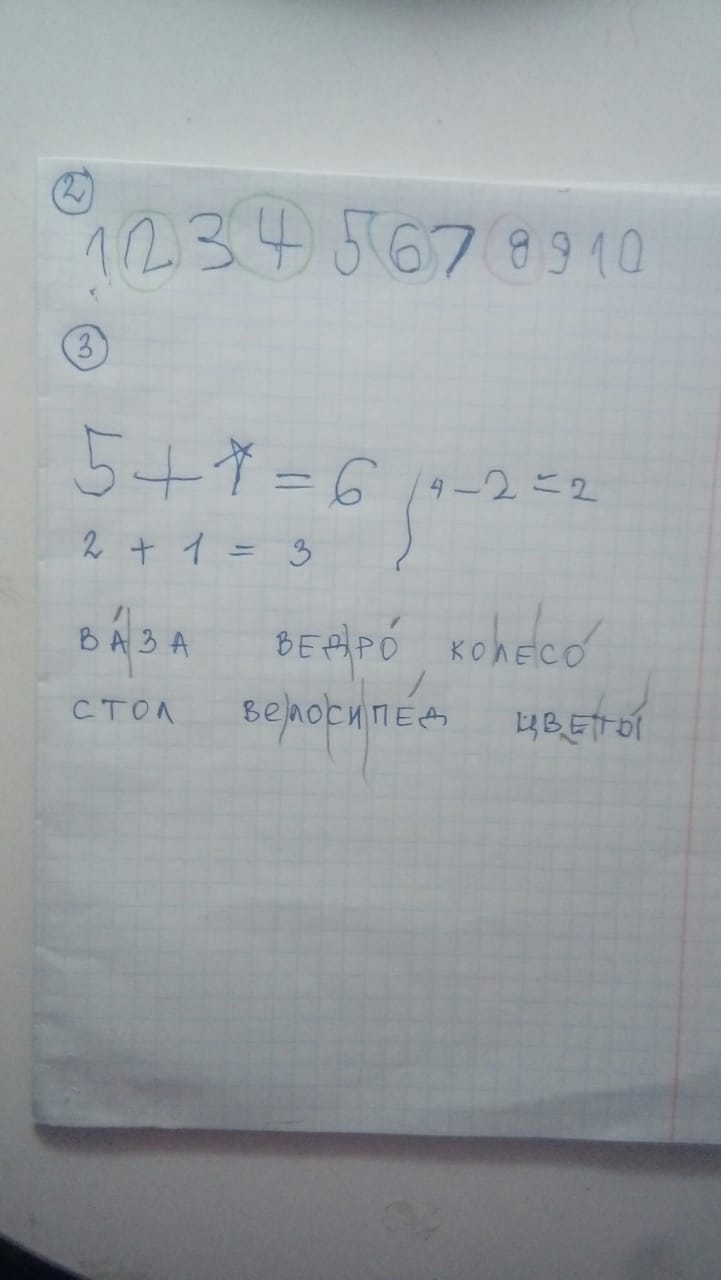 2
1 2 3 4 5 6 7 8 9 10
3
5 + 1 = 6 4 - 2 = 2
2 + 1 = 3
ВА́|ЗА ВЕД|РО́ КО|ЛЕ|СО́
СТОЛ ВЕ|ЛО|СИ|ПЕ́Д ЦВЕ|ТЫ́